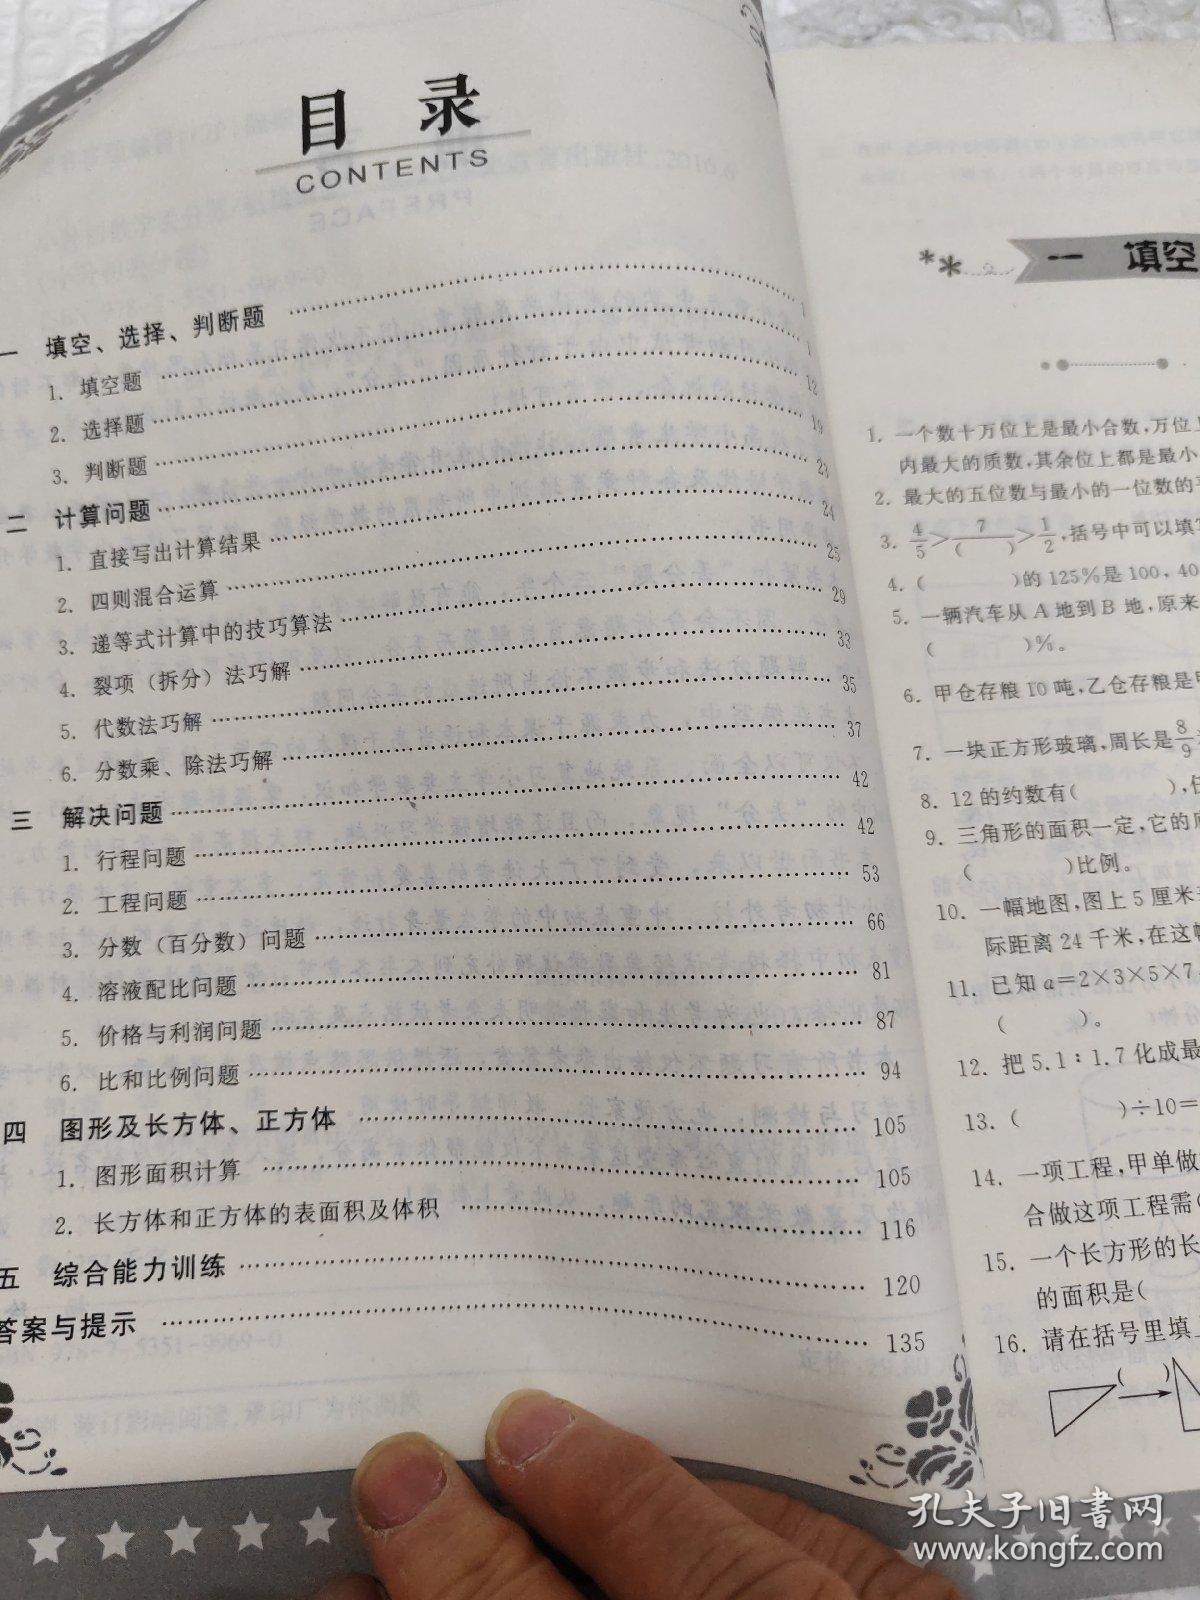 目 录
CONTENTS
一 填空、选择、判断题 1
1. 填空题 1
2. 选择题 12
3. 判断题 19
二 计算问题 23
1. 直接写出计算结果 24
2. 四则混合运算 25
3. 递等式计算中的技巧算法 29
4. 裂项（拆分）法巧解 33
5. 代数法巧解 35
6. 分数乘、除法巧解 37
三 解决问题 42
1. 行程问题 42
2. 工程问题 53
3. 分数（百分数）问题 66
4. 溶液配比问题 81
5. 价格与利润问题 87
6. 比和比例问题 94
四 图形及长方体、正方体 105
1. 图形面积计算 105
2. 长方体和正方体的表面积及体积 116
五 综合能力训练 120
答案与提示 135
一 填空
1. 一个数十万位上是最小合数,万位上
内最大的质数,其余位上都是最小
2. 最大的五位数与最小的一位数的
3. 4/5>7/( )>1/2,括号中可以填
4. ( )的125%是100,40
5. 一辆汽车从A地到B地,原来
( )%。
6. 甲仓存粮10吨,乙仓存粮是
7. 一块正方形玻璃,周长是8/9
8. 12的约数有( ),
9. 三角形的面积一定,它的
( )比例。
10. 一幅地图,图上5厘米
际距离24千米,在这
11. 已知a=2×3×5×7
( )。
12. 把5.1∶1.7化成最
13. ( )÷10=
14. 一项工程,甲单做
合做这项工程需(
15. 一个长方形的长
的面积是(
16. 请在括号里填
( )
孔夫子旧书网
www.kongfz.com